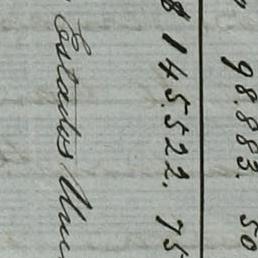 98.883. 50
145.522. 75
Estados Uni